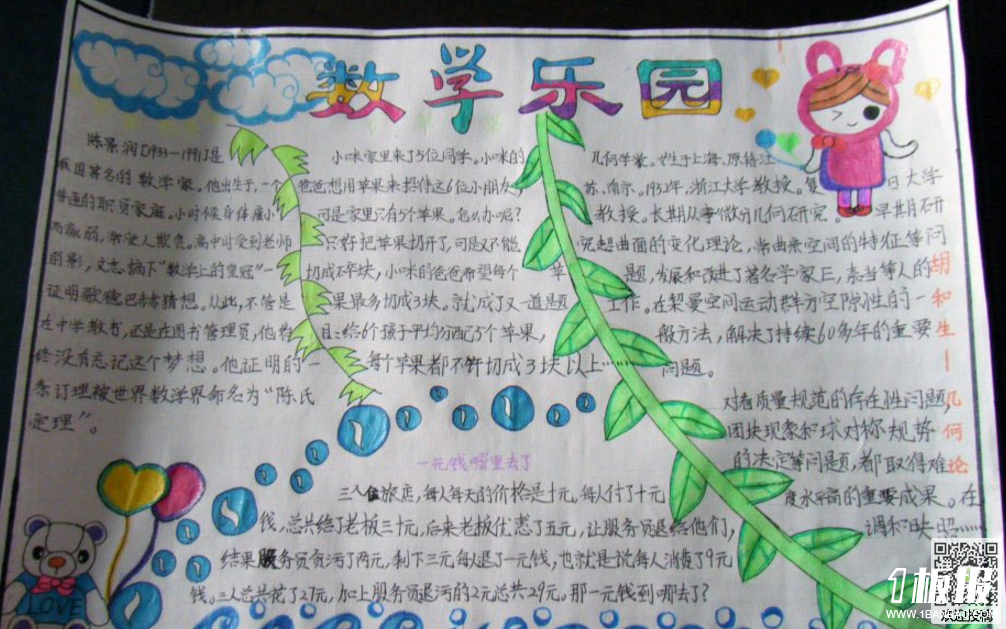 数学乐园
陈景润[1933—1991]是
我国著名的数学家。他出生于,一个
普通的职员家庭。小时候身体瘦小
而孱弱,常受人欺负。高中时受到老师
的影,立志摘下“数学上的皇冠”一
证明歌德巴赫猜想。从此,不管是
在中学教书,还是在图书管理员,他始
终没有忘记这个梦想。他证明的一
条订理被世界数学界命名为“陈氏
定理”。
小咪家里来了5位同学。小咪的
爸爸想用苹果来招待这6位小朋友
可是家里只有5个苹果。怎么办呢?
只好把苹果切开了,可是又不能
切成碎块,小咪的爸爸希望每个苹
果最多切成3块。就成了又一道题
目:给6个孩子平均分配5个苹果,
每个苹果都不许切成3块以上……
几何学家。也生于上海、原籍江
苏、南京。1952年,浙江大学教授。复旦大学
教授。长期从事微分几何研究。早期研
究超曲面的变化理论,常曲率空间的特征等问
题,发展和改进了著名学家E,嘉当等人的
工作。在契曼空间运动群方空隙性的一
般方法,解决了持续60多年的重要
问题。
对着质量规范的存在性问题,
团块现象和球对称规势
的决定等问题,都取得难
度水平高的重要成果。在
调和映照……
胡和生—几何论
一元钱哪里去了
三人住旅店,每人每天的价格是十元,每人付了十元
钱,总共给了老板三十元,后来老板优惠了五元,让服务员退给他们,
结果服务员贪污了两元,剩下三元每人退了一元钱,也就是说每人消费了9元
钱。三人总共花了27元,加上服务员退污的2元总共29元。那一元钱到哪去了?
LOVE
1板报
WWW.1BANBAO.COM
欢迎投稿